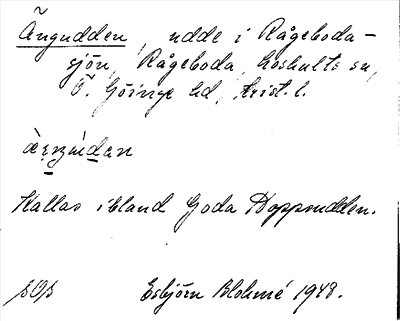 Ängudden, udde i Rågeboda-
sjön, Rågeboda, Loshults sn,
Ö. Göinge hd, Krist. l.
Kallas ibland Goda Hoppsudden.
SOS Esbjörn Blohmé 1948.